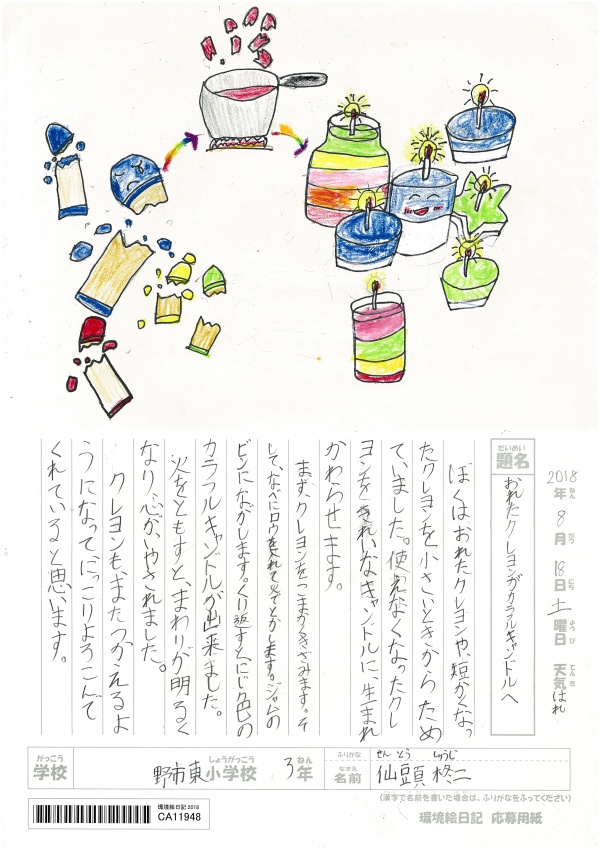 2018年ねん 8月がつ 18日にち 土曜日ようび 天気てんき はれ
題名だいめい
おれたクレヨンがカラフルキャンドルへ
ぼくはおれたクレヨンや、短かくなっ
たクレヨンを小さいときからため
ていました。使えなくなったクレ
ヨンをきれいなキャンドルに、生まれ
かわらせます。
まず、クレヨンをこまかくきざみます。そ
して、なべにロウを入れて火でとかします。ジャムの
ビンにながします。くり返すとにじ色の
カラフルキャンドルが出来ました。
火をともすと、まわりが明るく
なり、心が、いやされました。
クレヨンも、またつかえるよ
うになってにっこりよろこんで
くれていると思います。
学校がっこう 野市東小学校しょうがっこう 3年ねん
ふりがな せんとう しゅうじ
名前なまえ 仙頭 柊二
(漢字で名前を書いた場合は、ふりがなをふってください)
環境絵日記 2018
CA11948
環境絵日記 応募用紙